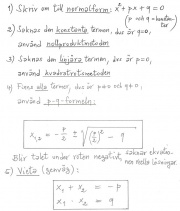 1) Skriv om till normalform: x² + px + q = 0
(p och q = konstanter)
2) Saknas den konstanta termen, dvs är q=0,
använd nollproduktmetoden
3) Saknas den linjära termen, dvs är p=0,
använd kvadratrotsmetoden
4) Finns alla termer, dvs är p≠0 och q≠0,
använd p-q-formeln:
x₁,₂ = -p/2 ± √((p/2)² - q)
Blir talet under roten negativt, saknar ekvationen reella lösningar.
5) Vieta (genväg):
x₁ + x₂ = -p
x₁ · x₂ = q